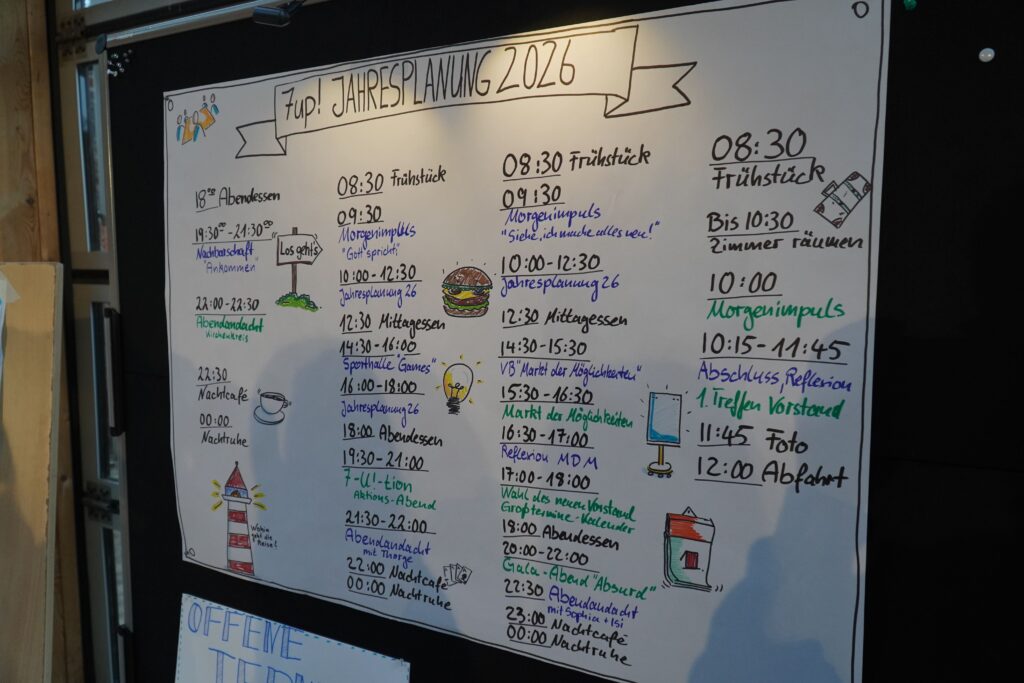 7up! JAHRESPLANUNG 2026
18⁰⁰ Abendessen
19:30⁰⁰ - 21:30⁰⁰
Nachbarschaft
"Ankommen"
Los geht's
22:00 - 22:30
Abendandacht
Kirchenkreis
22:30
Nachtcafé
00:00
Nachtruhe
Wohin
geht die
Reise?
08:30 Frühstück
09:30
Morgenimpuls
"Gott spricht:"
10:00 - 12:30
Jahresplanung 26
12:30 Mittagessen
14:30 - 16:00
Sporthalle "Games"
16:00 - 18:00
Jahresplanung 26
18:00 Abendessen
19:30 - 21:00
7-U!-tion
Aktions-Abend
21:30 - 22:00
Abendandacht
mit Thorge
22:00 Nachtcafé
00:00 Nachtruhe
08:30 Frühstück
09:30
Morgenimpuls
"Siehe, ich mache alles neu!"
10:00 - 12:30
Jahresplanung 26
12:30 Mittagessen
14:30 - 15:30
VB "Markt der Möglichkeiten"
15:30 - 16:30
Markt der Möglichkeiten
16:30 - 17:00
Reflexion MDM
17:00 - 18:00
Wahl des neuen Vorstand
Großtermine-Kalender
18:00 Abendessen
20:00 - 22:00
Gala-Abend "Absurd"
22:30 Abendandacht
mit Sophia + Isi
23:00 Nachtcafé
00:00 Nachtruhe
08:30
Frühstück
Bis 10:30
Zimmer räumen
10:00
Morgenimpuls
10:15 - 11:45
Abschluss, Reflexion
1. Treffen Vorstand
11:45 Foto
12:00 Abfahrt
OFFENE